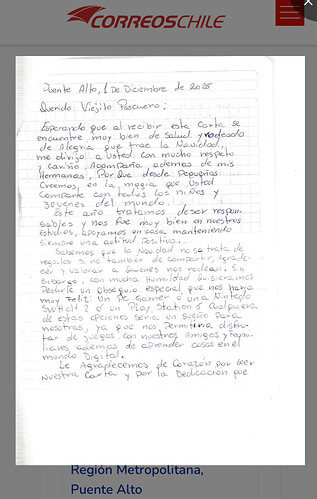 CORREOSCHILE
Puente Alto, 1 De Diciembre de 2025
Querido Viejito Pascuero:
Esperando que al recibir esta Carta se
encuentre muy bien de Salud y rodeado
de Alegria que trae la Navidad,
me dirijo a usted con mucho respeto
y cariño, Acompaña, ademas de mis
Hermanas, Por Que desde pequeñas
Creemos, en la magia que usted
Comparte con todos los niños y
Jovenes del mundo.
Este año tratamos de ser respon
sables y nos fue muy bien en nuestros
Estudios, apoyamos en casa manteniendo
siempre una actitud Positiva.
Sabemos que la Navidad no se trata de
regalos si no también de compartir, agrade-
cer y valorar a quienes nos rodean. Sin
Embargo, con mucha Humildad quisieramos
Pedirle un Obsequio especial que nos hara
muy Feliz: Un Pc Gamer o una Nintendo
Switch 2 o un Play Station 5 Cualquiera
de estas opciones seria un sueño Para
nosotras, ya que nos Permitiria disfru-
tar de juegos con nuestros Amigos y
ademas de aprender cosas en el
mundo Digital.
Le Agradecemos de Corazón por Leer
Nuestra Carta y por la Dedicación que
Región Metropolitana,
Puente Alto